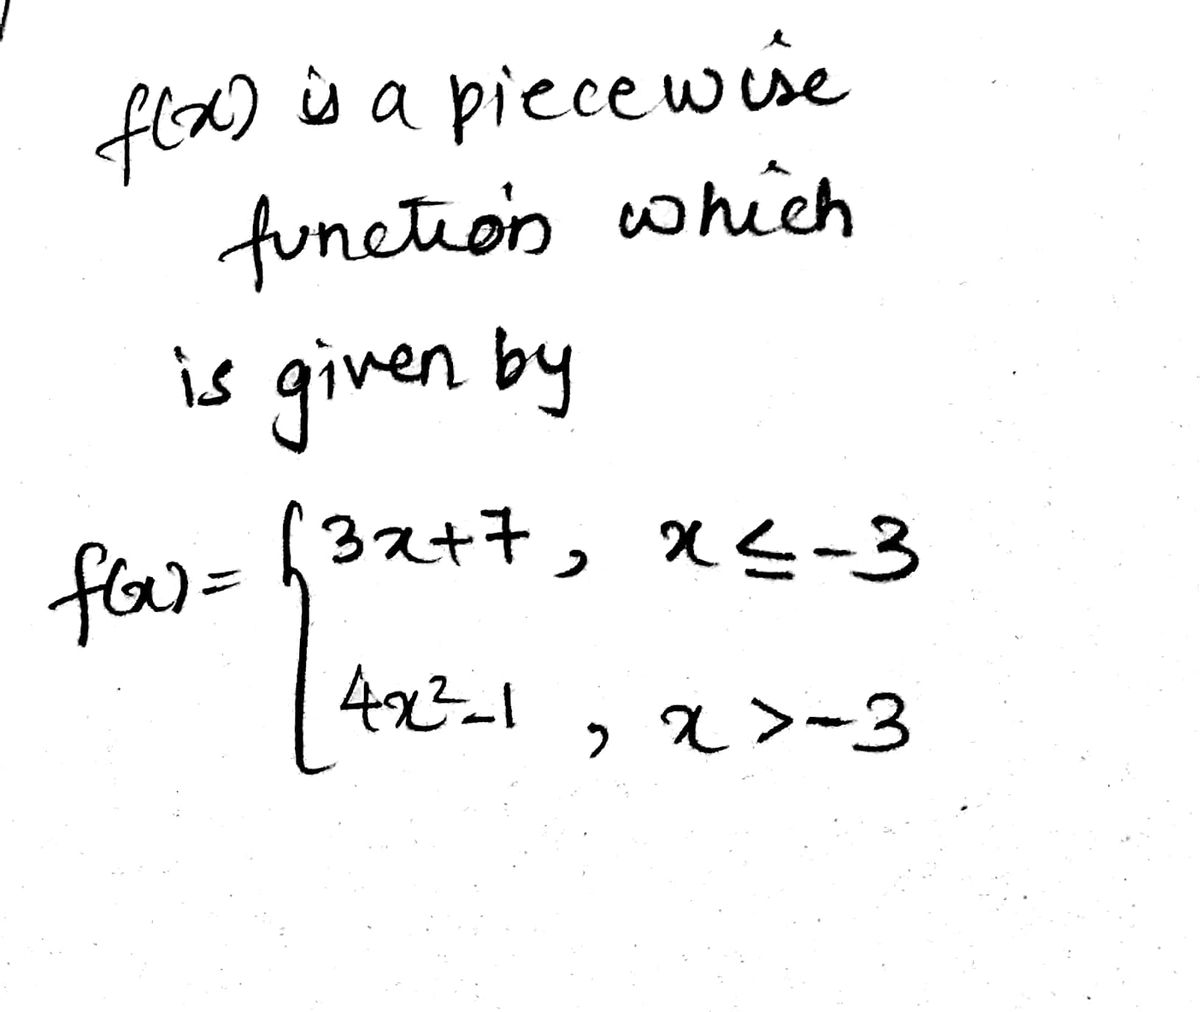 f(x) is a piecewise
function which
is given by
f(x) = { 3x+7 , x ≤ -3
4x²-1 , x > -3